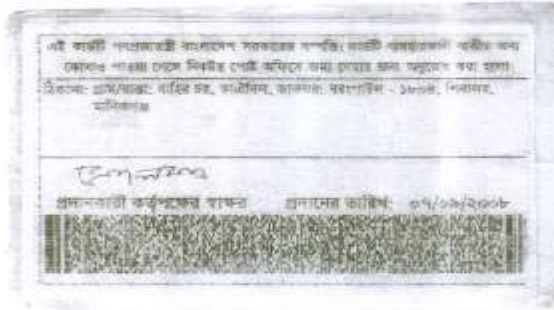 এই কার্ডটি গণপ্রজাতন্ত্রী বাংলাদেশ সরকারের সম্পত্তি। কার্ডটি ব্যবহারকারী ব্যতীত অন্য
কোথাও পাওয়া গেলে নিকটস্থ পোস্ট অফিসে জমা দেবার জন্য অনুরোধ করা হলো।
ঠিকানা: গ্রাম/রাস্তা: বাহির চর, ডাকঘর: - ১৮০৪, শিবালয়,
মানিকগঞ্জ
প্রদানকারী কর্তৃপক্ষের স্বাক্ষর প্রদানের তারিখ: ০৭/০৯/২০০৮